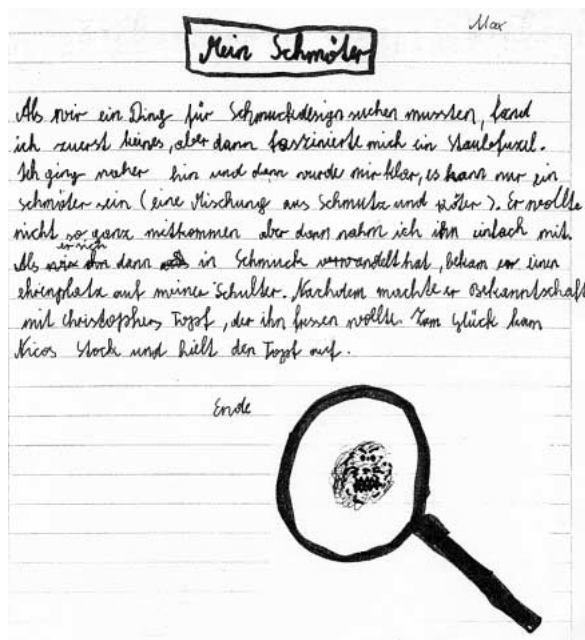 Max
Mein Schmöter
Als wir ein Ding für Schmuckdesign suchen mussten, fand
ich zuerst keines, aber dann faszinierte mich ein Staubfuzel.
Ich ging naher hin und dann wurde mir klar, es kann nur ein
Schmöter sein (eine Mischung aus Schmutz und Köter). Er wollte
nicht so ganz mitkommen aber dann nahm ich ihn einfach mit.
er sich
Als dann in Schmuck verwandelt hat, bekam er einen
ehrenplatz auf meiner Schulter. Nachdem machte er Bekanntschaft
mit Christophers Topf, der ihn fressen wollte. Zum Glück kam
Nicos Stock und hielt den Topf auf.
Ende